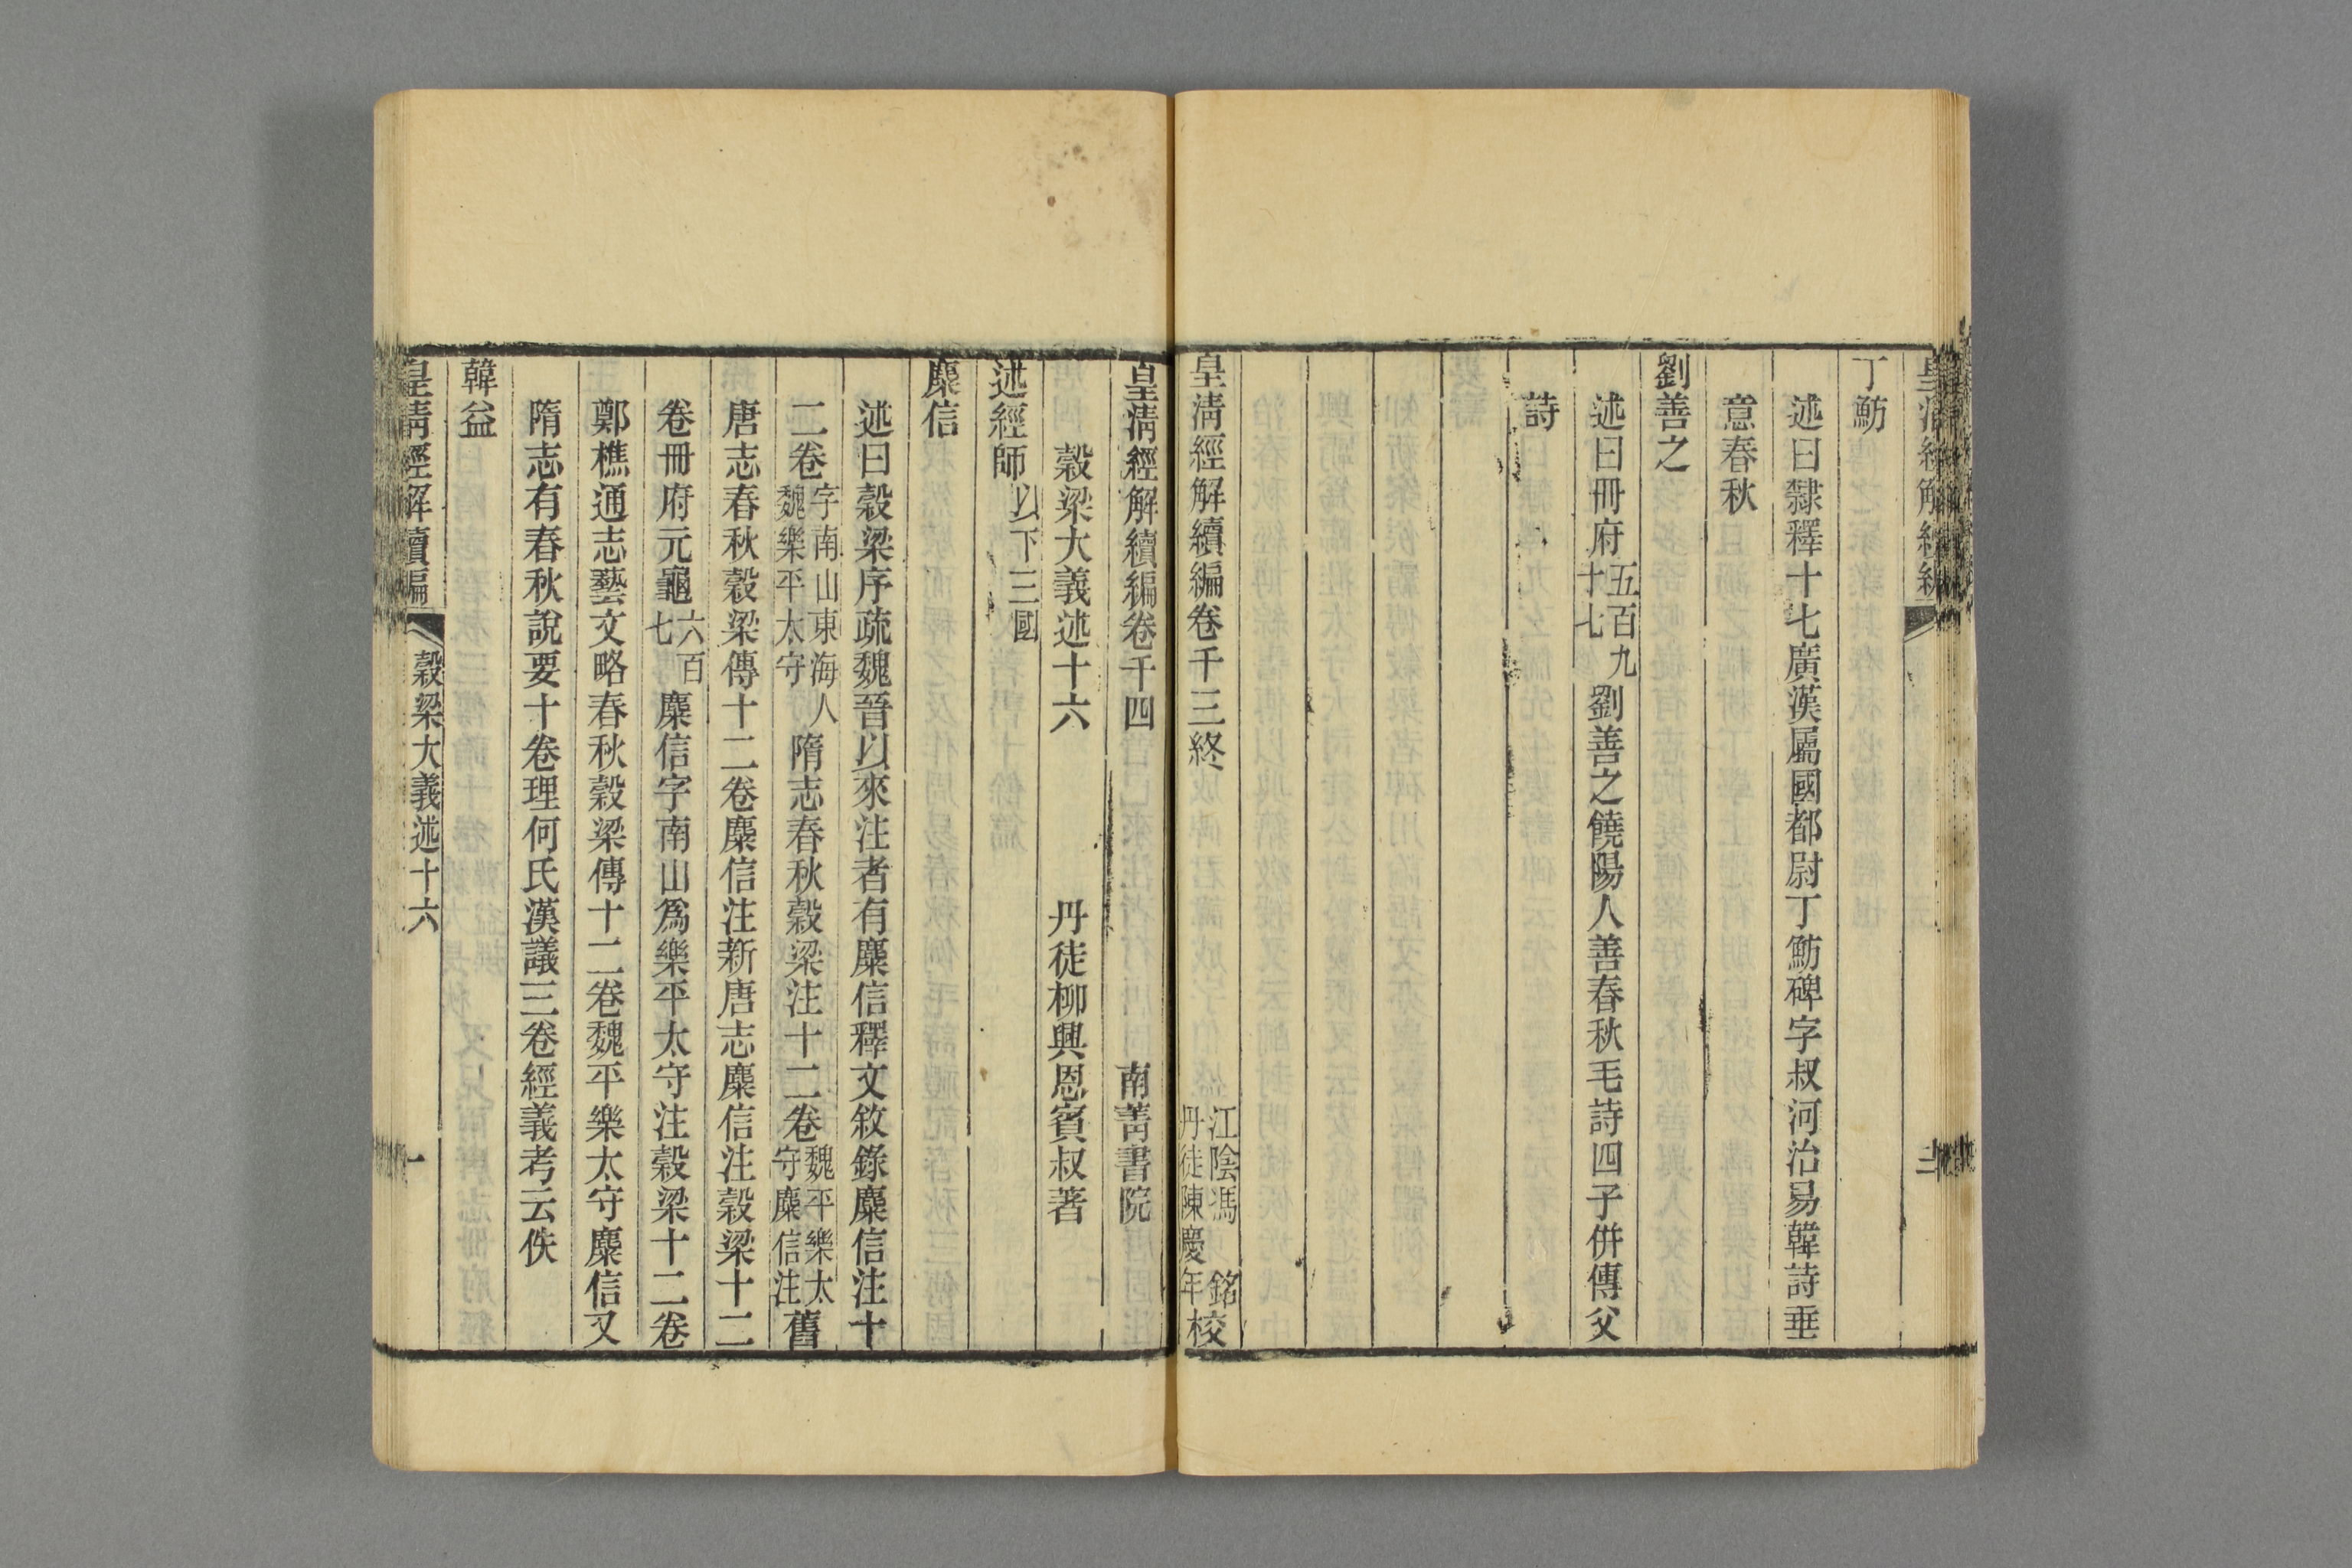 丁魴
述曰隸釋十七廣漢屬國都尉丁魴碑字叔河治易韓詩垂
意春秋
劉善之
述曰冊府五百九十七劉善之饒陽人善春秋毛詩四子倂傳父
詩
皇清經解續編卷千三終
江陰馮銘
丹徒陳慶年校
皇清經解續編卷千四
南菁書院
穀梁大義述十六
丹徒柳興恩賓叔著
述經師以下三國
麋信
述曰穀梁序疏魏晉以來注者有麋信釋文敘錄麋信注十
二卷字南山東海人魏樂平太守隋志春秋穀梁注十二卷魏平樂太守麋信注舊
唐志春秋穀梁傳十二卷麋信注新唐志麋信注穀梁十二
卷冊府元龜六百七麋信字南山爲樂平太守注穀梁十二卷
鄭樵通志藝文略春秋穀梁傳十二卷魏平樂太守麋信又
隋志有春秋說要十卷理何氏漢議三卷經義考云佚
韓益
皇清經解續編
穀梁大義述十六
一